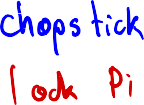 chopstick
lock Pi